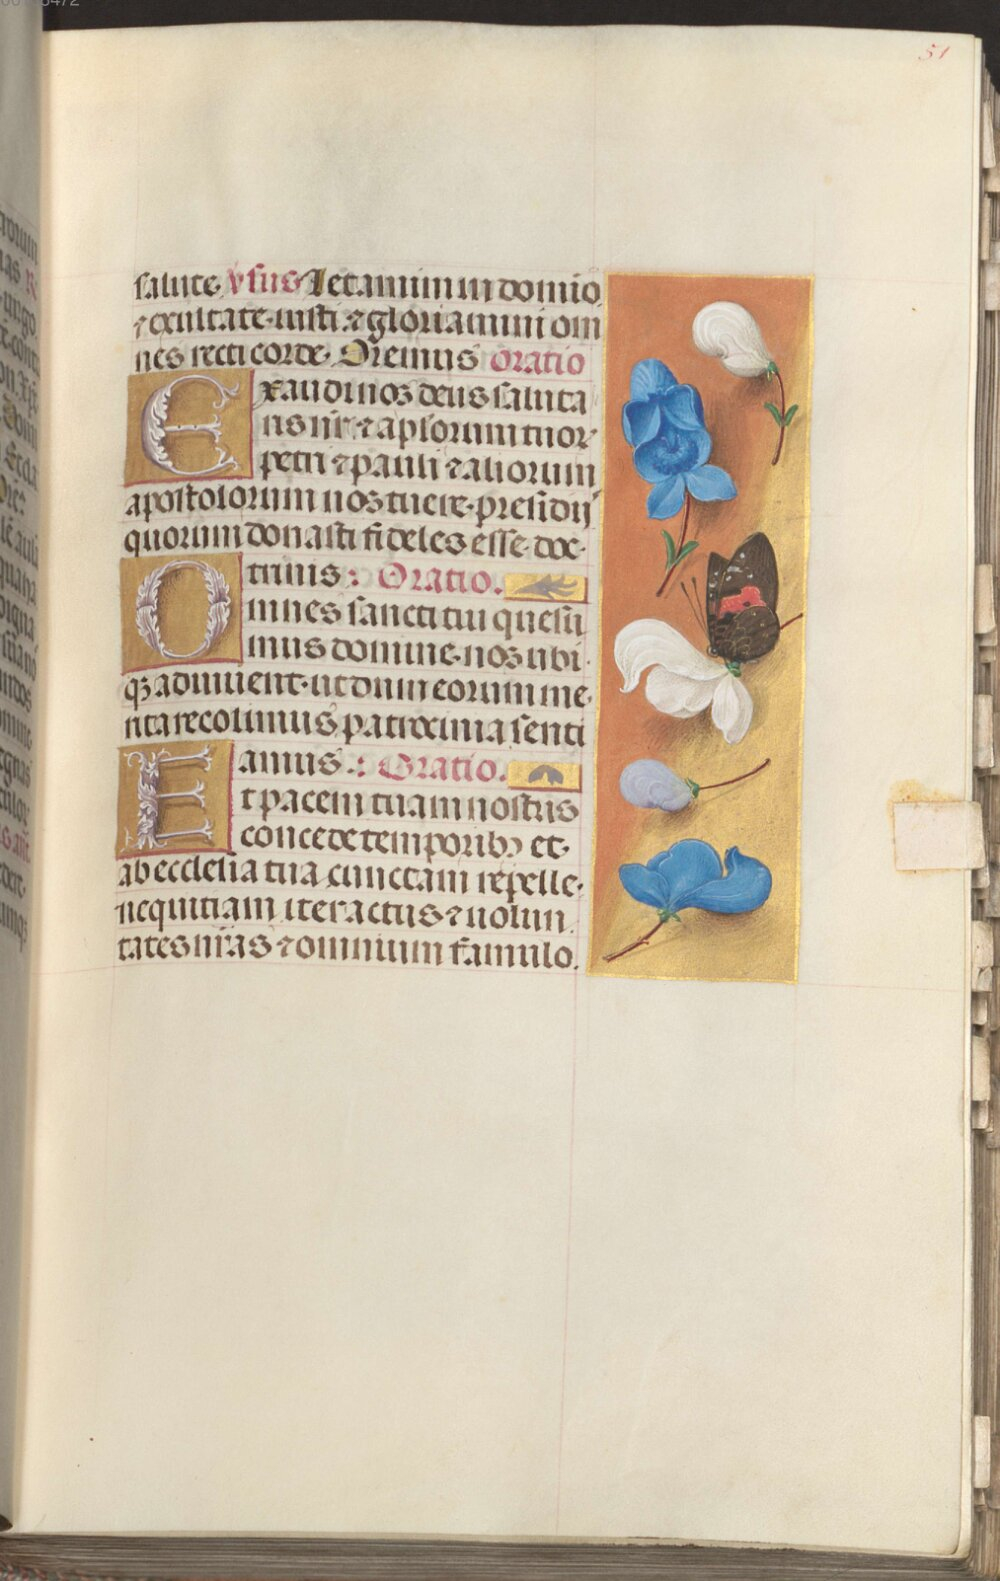 51
salute. vsus Letamini in domio
⁊ exultate iusti ⁊ gloriamini om
nes recti corde. Oremus oratio
Exaudi nos deus saluta
ris nr̄ ⁊ aplorum tuor
petri ⁊ pauli ⁊ aliorum
apostolorum nos tuere presidiis
quorum donasti fideles esse doc
trinis : Oratio.
Omnes sancti tui quesu
mus domine nos ubi
qȝ adiuuent ut dum eorum me
rita recolimus patrocinia senti
amus : Oratio.
Et pacem tuam nostris
concede temporibꝰ et
ab ecclesia tua cunctam repelle
nequitiam iter actus ⁊ uolun
tates nr̄as ⁊ omnium famulo.